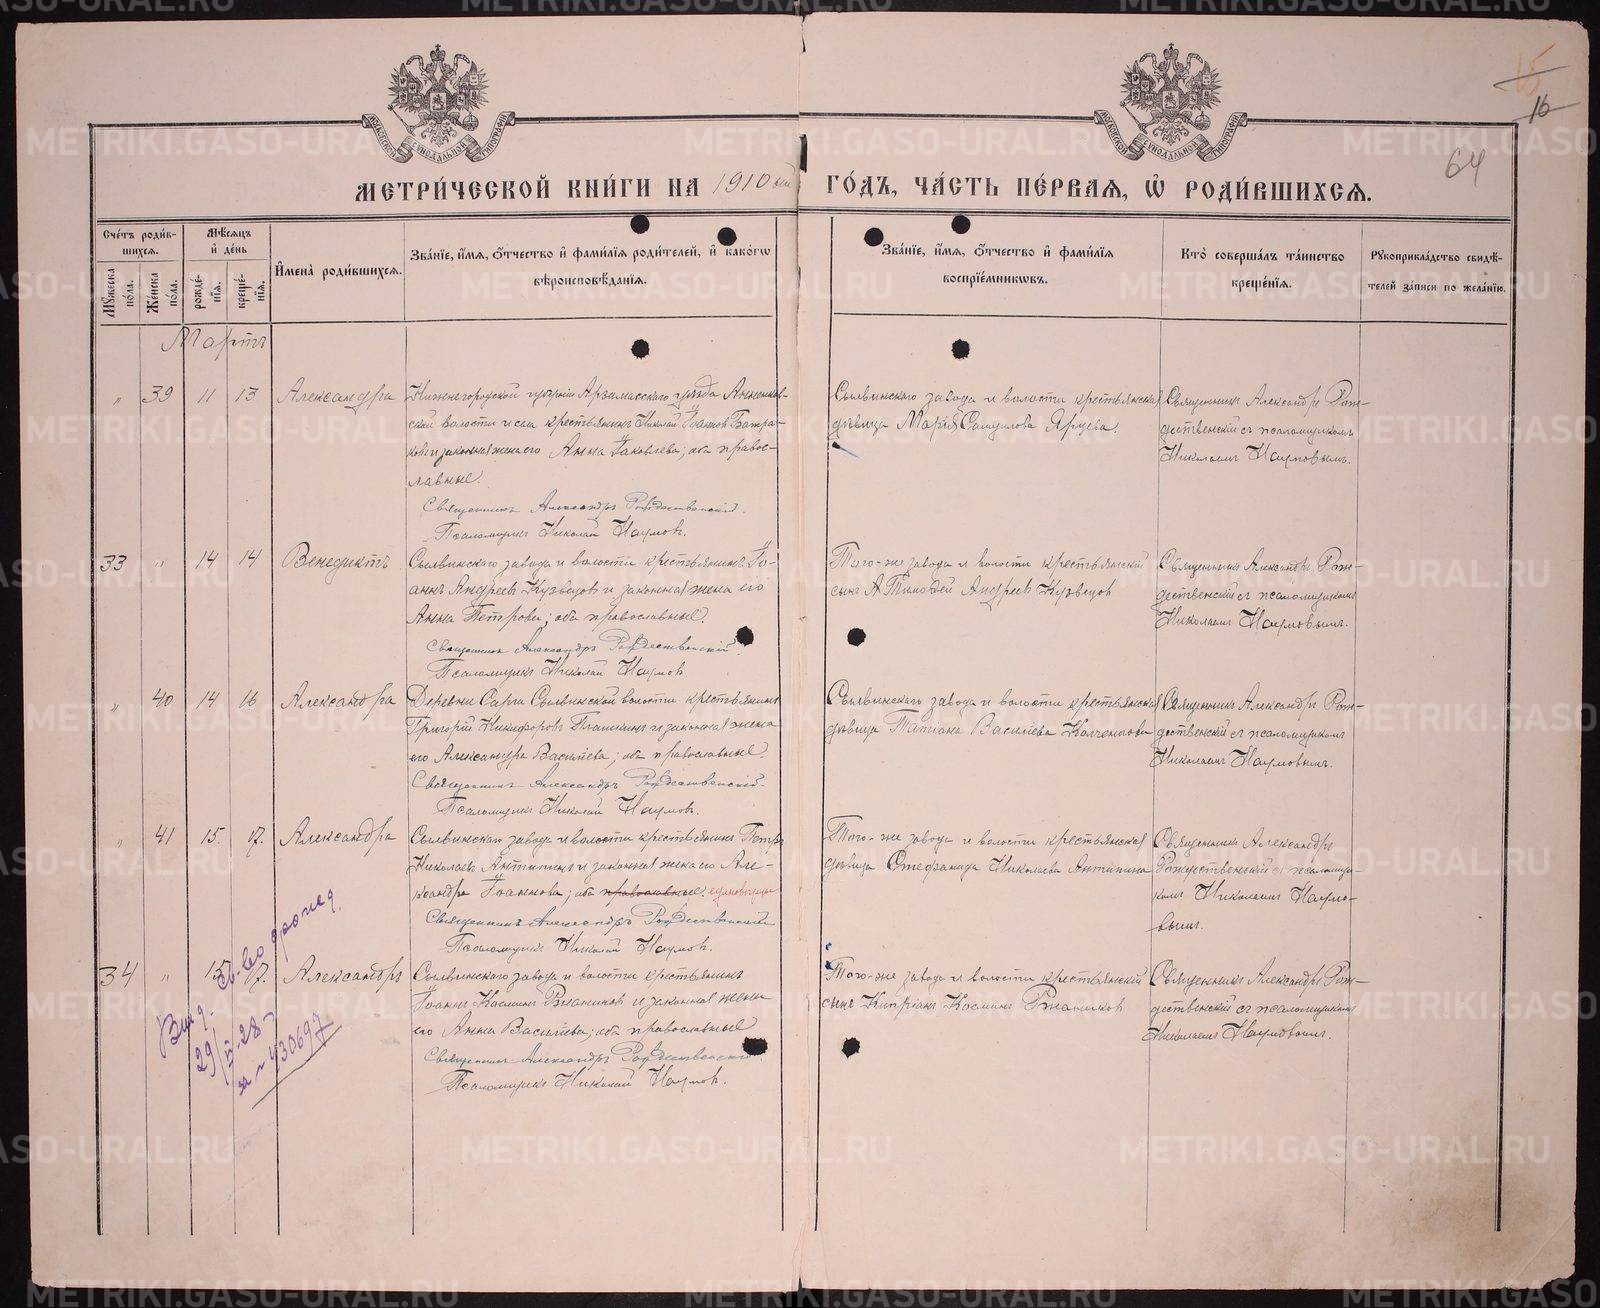 15
16
64
МЕТРИ́ЧЕСКОЙ КНИ́ГИ НА 1910 ый ГО́ДЪ, ЧА́СТЬ ПЕ́РВАЯ, Ѡ҆ РОДИ́ВШИХСЯ.
Сче́тъ роди́в-
шихся.
Мѣ́сяцъ
и҆ де́нь
Мꙋ́жеска
по́ла.
Же́нска
по́ла.
рожде́-
нїя.
креще́-
нїя.
И҆мена̀ роди́вшихся.
Зва́нїе, и҆́мя, ѻ҆́тчество и҆ фами́лїя роди́телей, и҆ како́гѡ
вѣроисповѣ́данїя.
Зва́нїе, и҆́мя, ѻ҆́тчество и҆ фами́лїя
воспрїе́мникѡвъ.
Кто̀ соверша́лъ та́инство
креще́нїя.
Рꙋкоприкла́дство свидѣ́-
телей за́писи по жела́нїю.
Мартъ
" 39 11 13 Александра
Нижнегородской губерніи Арзамасскаго уѣзда Анненков-
ской волости и села крестьянинъ Николай Іоанновъ Батра-
ковъ и законная жена его Анна Іаковлева; оба правос-
лавные.
Священникъ Александръ Рождественскій.
Псаломщикъ Николай Наумовъ.
Сылвинскаго завода и волости крестьянская
дѣвица Марія Самуилова Ярцева.
Священникъ Александръ Рож-
дественскій съ псаломщикомъ
Николаемъ Наумовымъ.
33 " 14 14 Венедиктъ
Сылвинскаго завода и волости крестьянинъ Іо-
аннъ Андреевъ и законная жена его
Анна Петрова; оба православные.
Священникъ Александръ Рождественскій.
Псаломщикъ Николай Наумовъ
Того-же завода и волости крестьянскій
сынъ Тимофей Андреевъ
Священникъ Александръ Рож-
дественскій съ псаломщикомъ
Николаемъ Наумовымъ.
" 40 14 16 Александра
Деревни Сарги Сылвинской волости крестьянинъ
Григорій Никифоровъ и законная жена
его Александра Васильева; оба православные.
Священникъ Александръ Рождественскій.
Псаломщикъ Николай Наумовъ.
Сылвинскаго завода и волости крестьянская
дѣвица Татіана Васильева
Священникъ Александръ Рож-
дественскій съ псаломщикомъ
Николаемъ Наумовымъ.
" 41 15. 17. Александра
Сылвинскаго завода и волости крестьянинъ Петръ
Николаевъ Антипинъ и законная жена его Але-
ксандра Іоаннова; оба православные. единовѣрцы
Священникъ Александръ Рождественскій
Псаломщикъ Николай Наумовъ.
Того-же завода и волости крестьянская
дѣвица Стефанида Николаева Антипина
Священникъ Александръ
Рождественскій съ псаломщи-
комъ Николаемъ Наумо-
вымъ.
34 " 15 17. Александръ
Сылвинскаго завода и волости крестьянинъ
Іоаннъ Косминъ и законная жена
его Анна Васильева; оба православные
Священникъ Александръ Рождественскій
Псаломщикъ Николай Наумовъ.
Того-же завода и волости крестьянскій
сынъ Кипріанъ Косминъ
Священникъ Александръ Рож-
дественскій съ псаломщикомъ
Николаемъ Наумовымъ.
Выд. св-во
29/VI-28
за № 430697.
METRIKI.GASO-URAL.RU